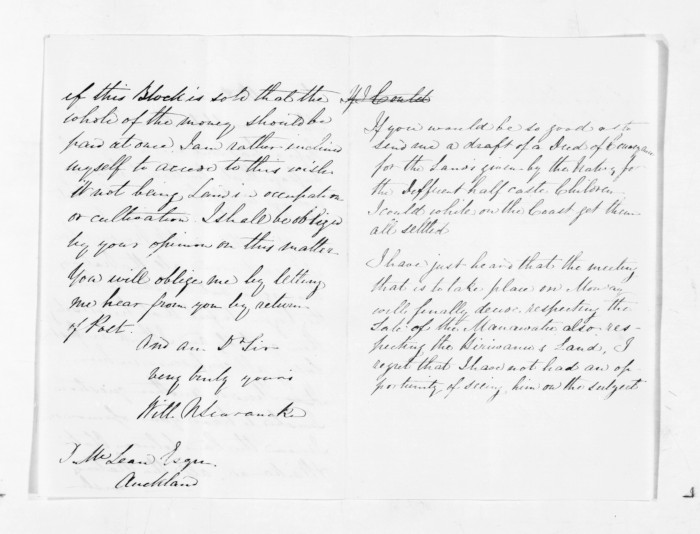 if this Block is sold that the
whole of the money should be
paid at once I am rather inclined
myself to accede to this wish
it not being Land in occupation
or cultivation I shall be obliged
by your opinion on this matter
You will oblige me by letting
me hear from you by return
of Post.
And am Dr Sir
very truly yours
Will. N Searancke
D McLean Esqre
Auckland
If I Could
If you would be so good as to
send me a draft of a Deed of
for the Lands given by the Natives for
the Different half caste Children
I could while on the Coast get them
all settled
I have just heard that the meeting
that is to take place on Monday
will finally decide respecting the
Sale of the Manawatu also res-
pecting the Land, I
regret that I have not had an op
portunity of seeing him on the subject